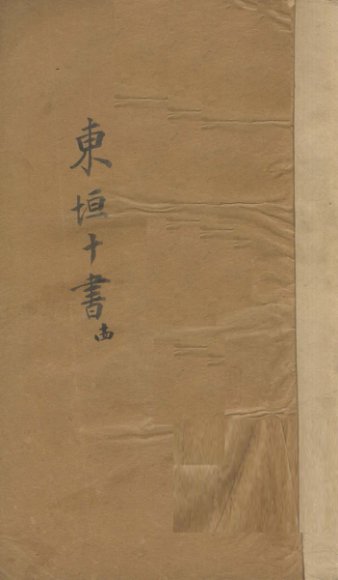 東垣十書